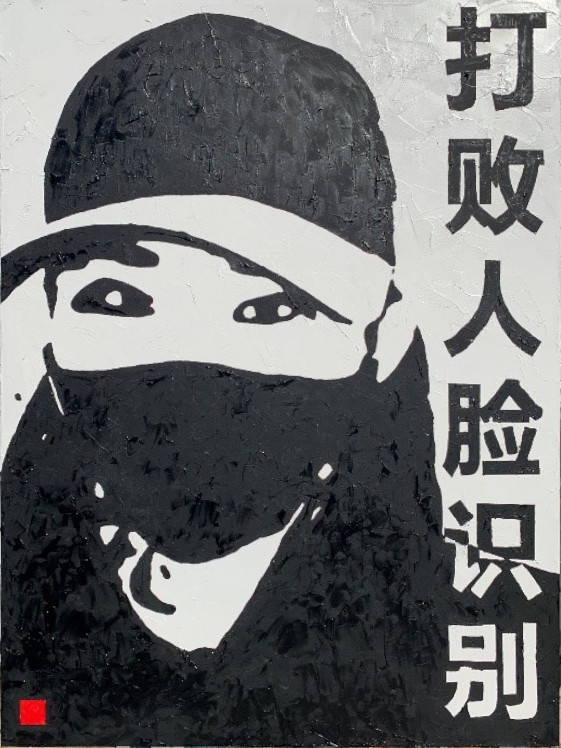 打败人脸识别